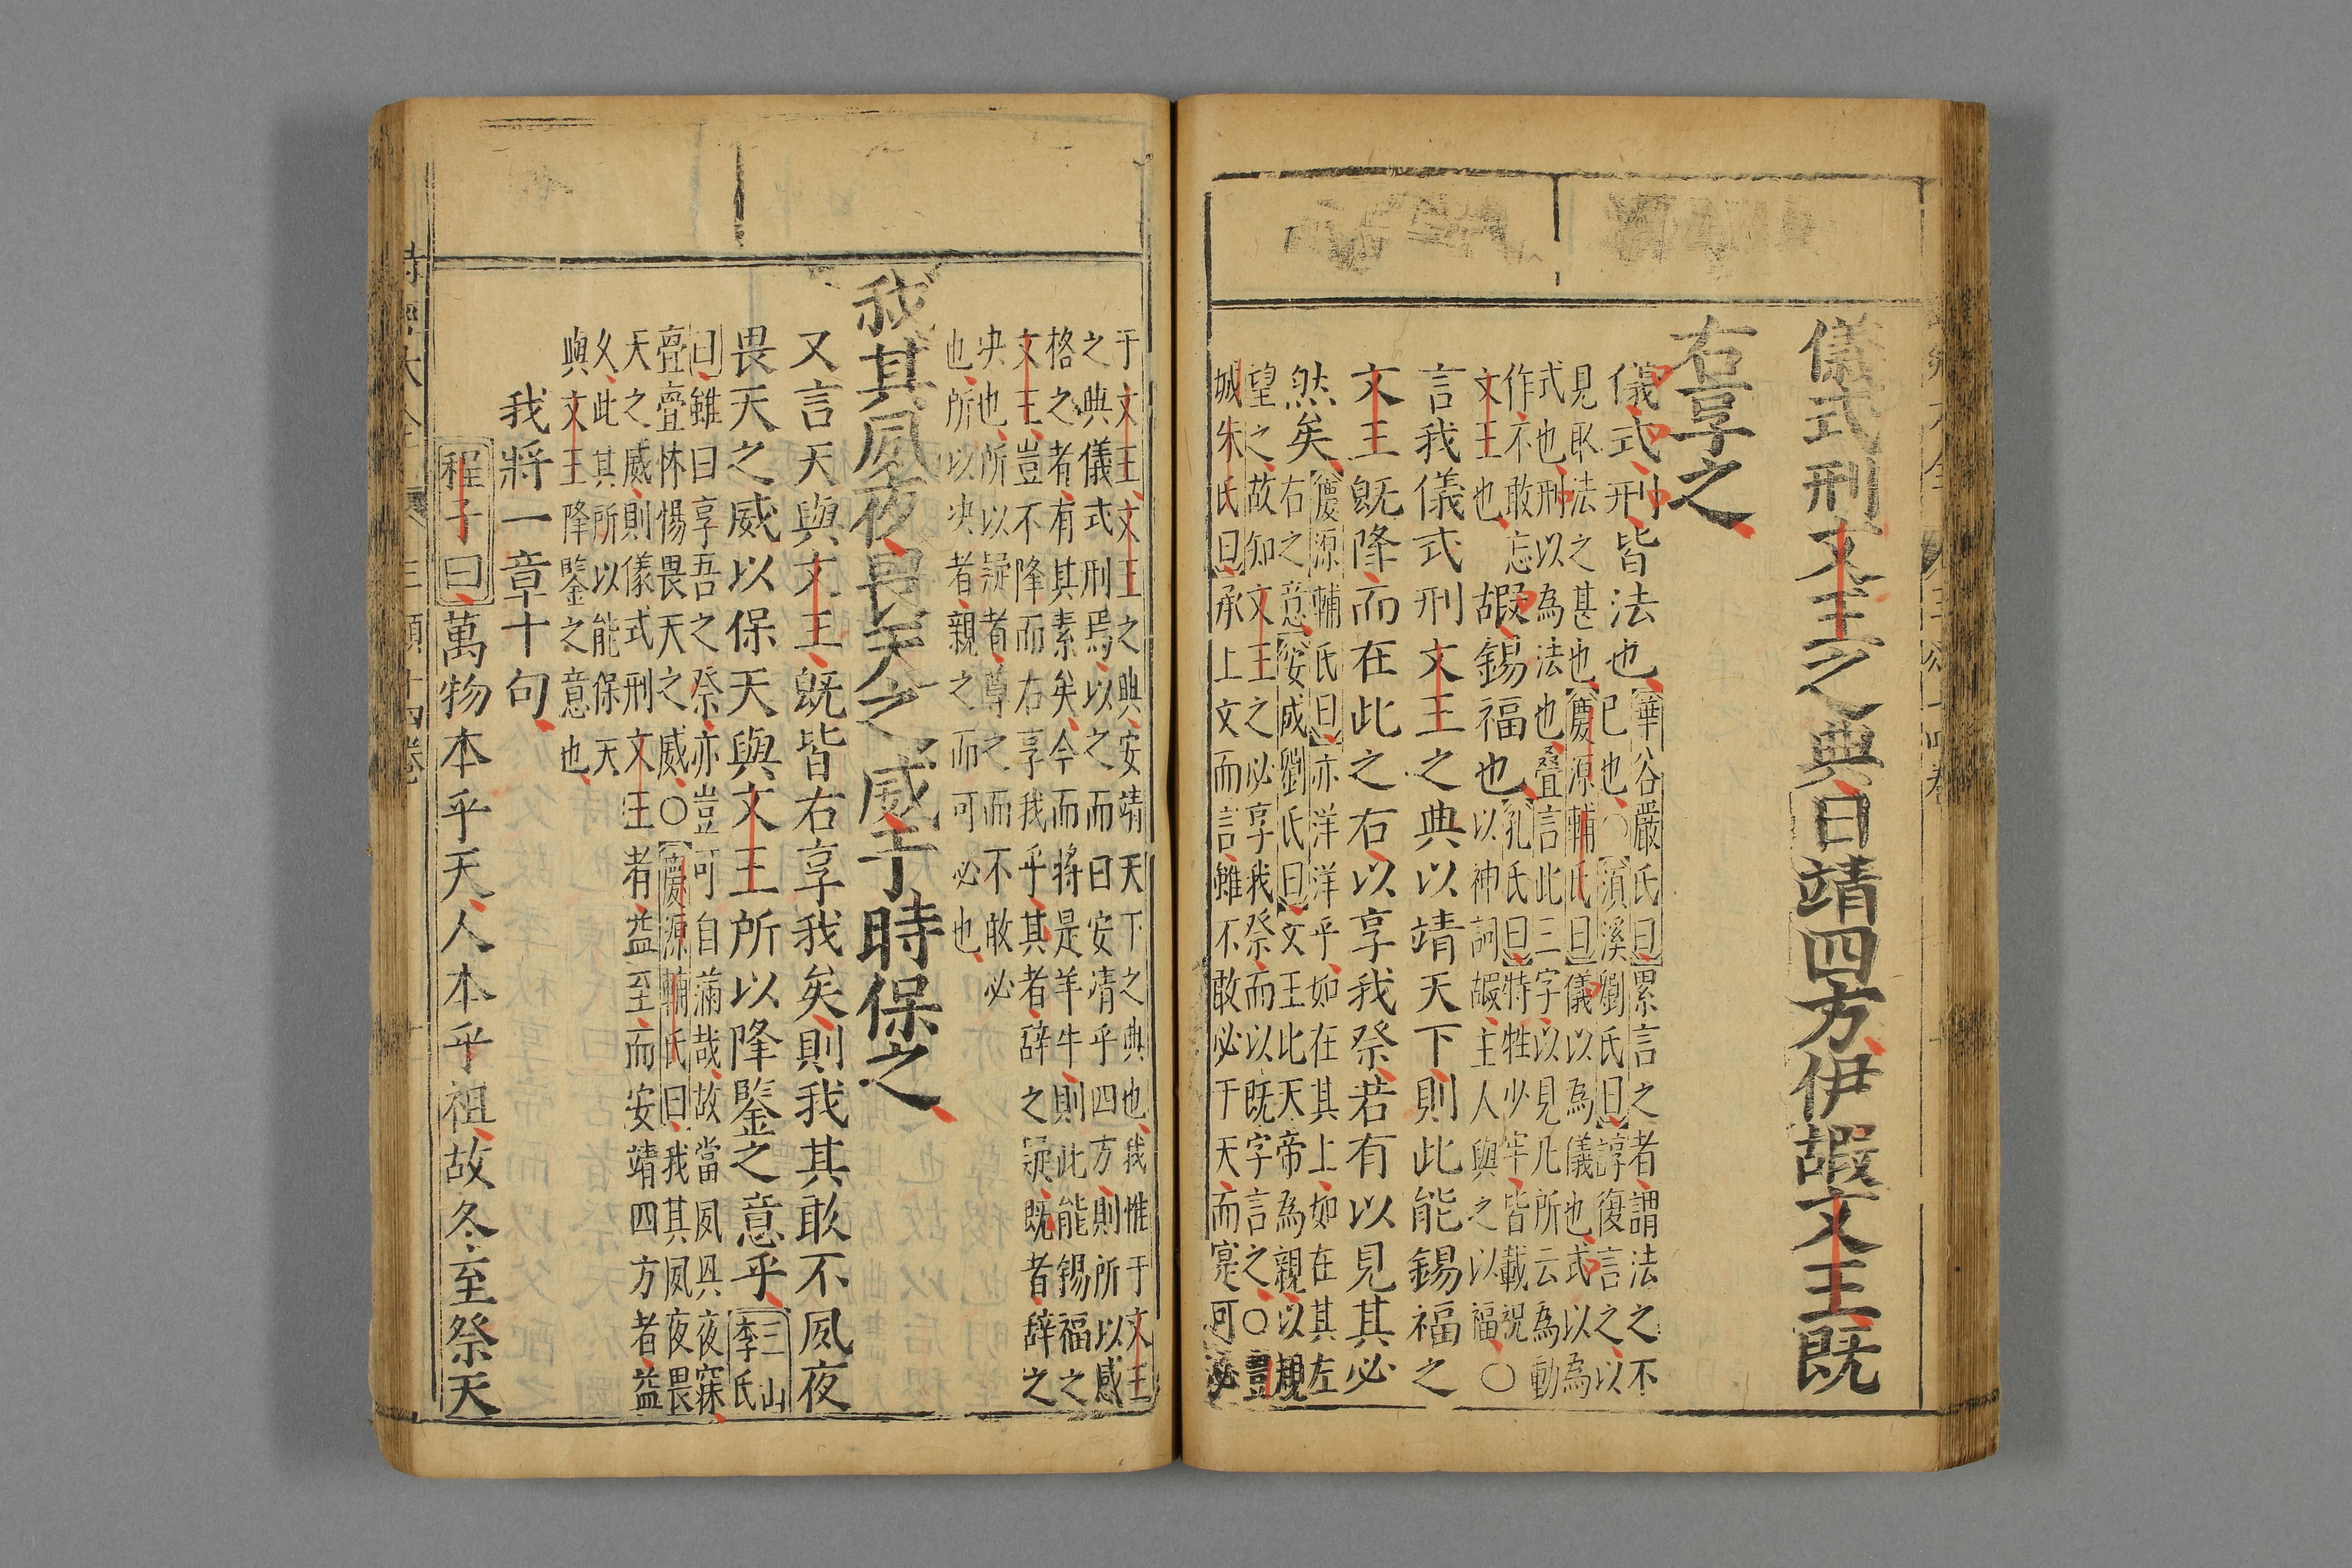 儀式刑文王之典日靖四方伊嘏文王既
右享之
儀式刑皆法也
華谷嚴氏曰累言之者謂法之不
已也○須溪劉氏曰諄復言之以
見取法之甚也慶源輔氏曰儀以為儀也式以為
式也刑以為法也叠言此三字以見凡所云為動
作不敢忘
文王也
嘏錫福也
孔氏曰特牲少牢皆載祝
以神詞嘏主人與之以福○
言我儀式刑文王之典以靖天下則此能錫福之
文王既降而在此之右以享我祭若有以見其必
然矣
慶源輔氏曰亦洋洋乎如在其上如在其左
右之意安成劉氏曰文王此天帝為親以親
望之故知文王之必享我祭而以既字言之○豈
城朱氏曰承上文而言雖不敢必于天而寔可必
于文王文王之典安靖天下之典也我惟于文王
之典儀式刑焉以之而日安靖乎四方則所以感
格之者有其素矣今而將是羊牛則此能錫福之
文王豈不降而右享我乎其者辞之疑既者辞之
决也所以疑者尊之而不敢必
也所以决者親之而可必也
我其夙夜畏天之威于時保之
又言天與文王既皆右享我矣則我其敢不夙夜
畏天之威以保天與文王所以降鑒之意乎
三山
李氏
曰雖曰享吾之祭亦豈可自滿哉故當夙興夜寐
亹亹怵惕畏天之威○慶源輔氏曰我其夙夜畏
天之威則儀式刑文王者益至而安靖四方者益
久此其所以能保天
與文王降鑒之意也
我將一章十句
程子曰萬物本乎天人本乎祖故冬至祭天